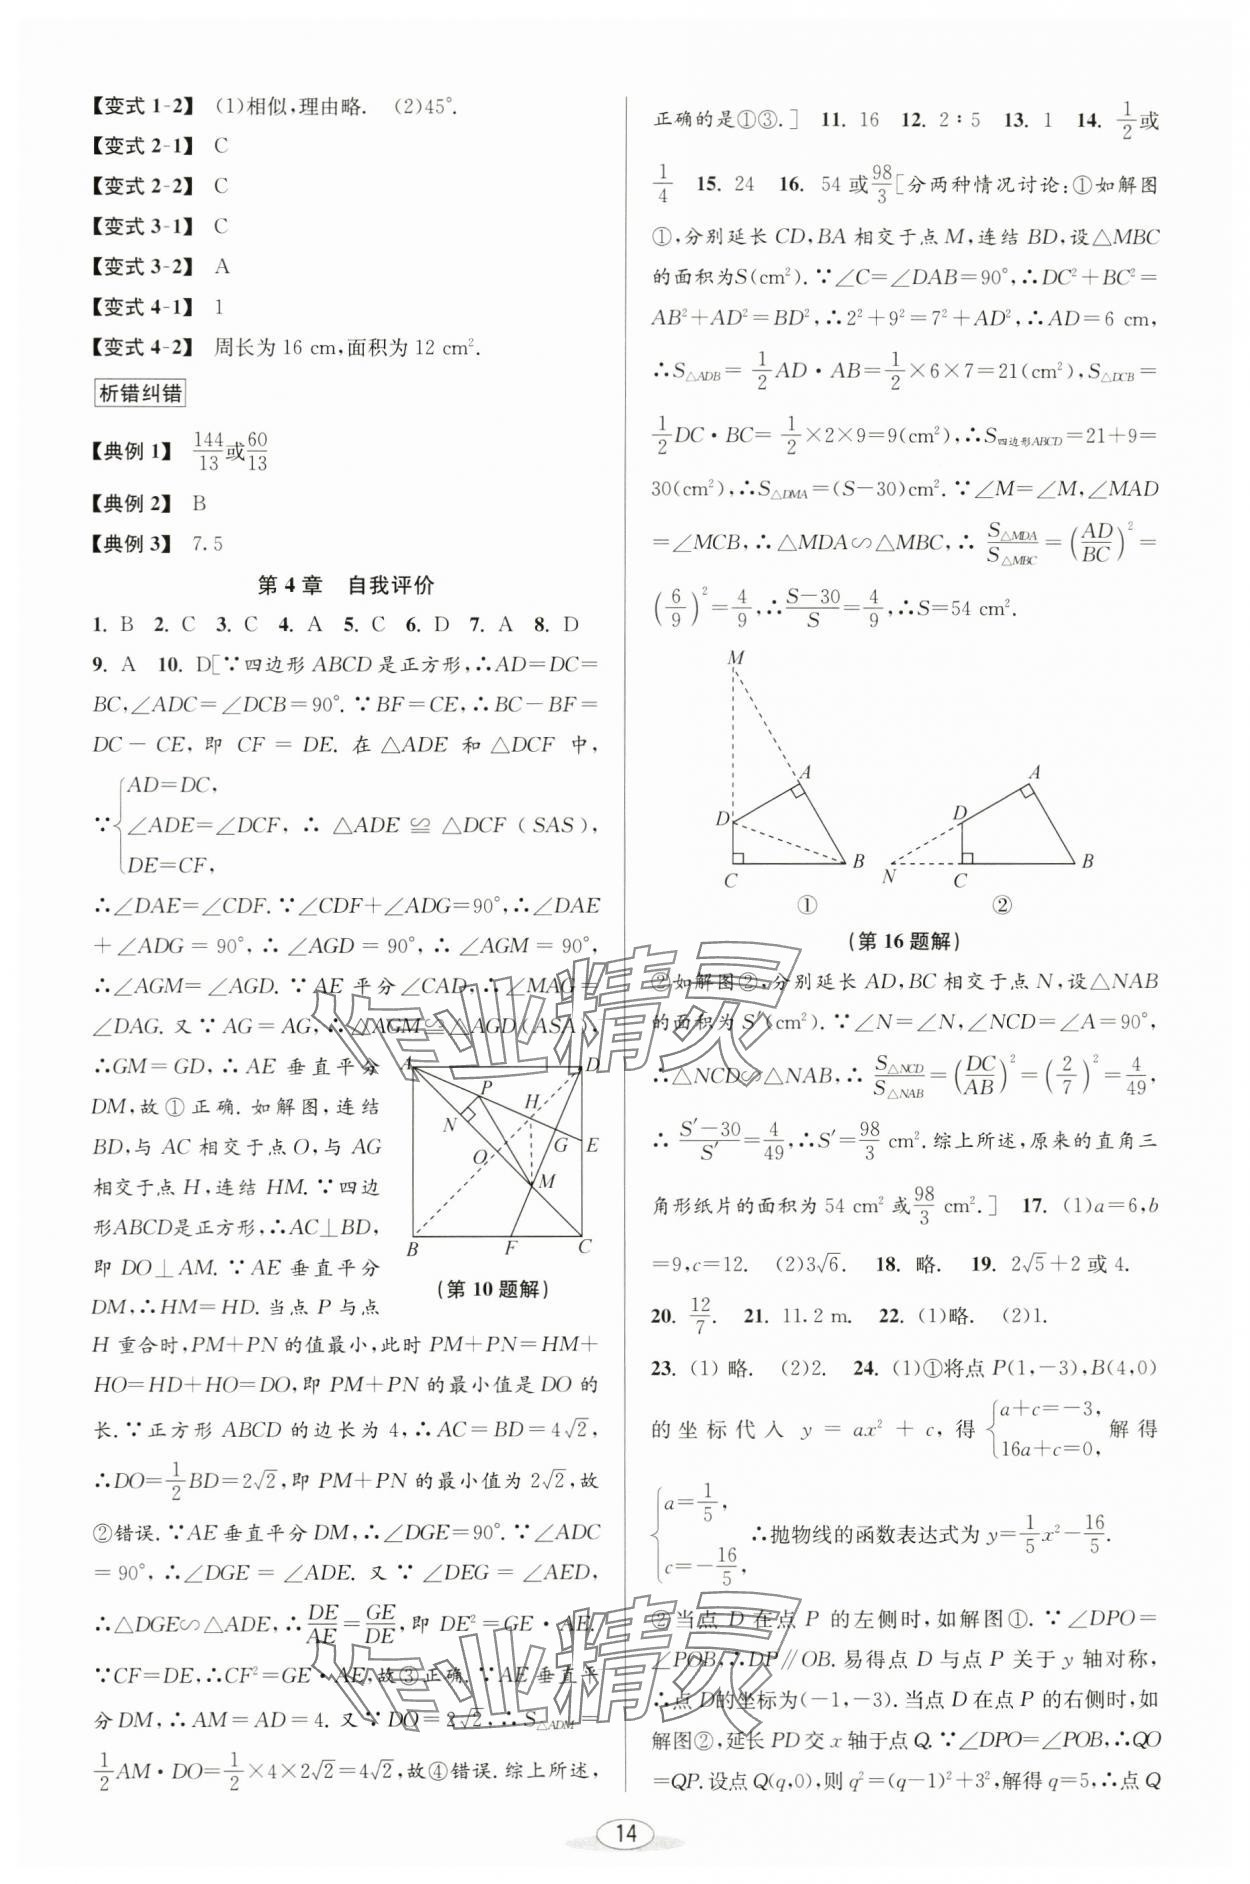 【变式 1-2】 (1)相似,理由略. (2)45°.
【变式 2-1】 C
【变式 2-2】 C
【变式 3-1】 C
【变式 3-2】 A
【变式 4-1】 1
【变式 4-2】 周长为 16 cm,面积为 12 cm².
析错纠错
【典例 1】 144/13或60/13
【典例 2】 B
【典例 3】 7.5
第 4 章 自我评价
1. B 2. C 3. C 4. A 5. C 6. D 7. A 8. D
9. A 10. D[∵四边形 ABCD 是正方形,∴AD=DC=
BC,∠ADC=∠DCB=90°.∵BF=CE,∴BC-BF=
DC-CE,即 CF=DE.在△ADE 和△DCF 中,
AD=DC,
∵{∠ADE=∠DCF, ∴△ADE≌△DCF(SAS),
DE=CF,
∴∠DAE=∠CDF.∵∠CDF+∠ADG=90°,∴∠DAE
+∠ADG=90°,∴∠AGD=90°,∴∠AGM=90°,
∴∠AGM=∠AGD.∵AE 平分∠CAD,∴∠MAG=
∠DAG.又∵AG=AG,∴△AGM≌△AGD(ASA),
∴GM=GD,∴AE 垂直平分
DM,故①正确.如解图,连结
BD,与 AC 相交于点 O,与 AG
相交于点 H,连结 HM.∵四边
形ABCD是正方形,∴AC⊥BD,
即 DO⊥AM.∵AE 垂直平分
DM,∴HM=HD.当点 P 与点
A
D
P
H
N
G
E
O
M
B
F
C
(第 10 题解)
H 重合时,PM+PN 的值最小,此时 PM+PN=HM+
HO=HD+HO=DO,即 PM+PN 的最小值是 DO 的
长.∵正方形 ABCD 的边长为 4,∴AC=BD=4√2,
∴DO=1/2BD=2√2,即 PM+PN 的最小值为 2√2,故
②错误.∵AE 垂直平分 DM,∴∠DGE=90°.∵∠ADC
=90°,∴∠DGE=∠ADE.又∵∠DEG=∠AED,
∴△DGE∽△ADE,∴DE/AE=GE/DE,即 DE²=GE·AE.
∵CF=DE,∴CF²=GE·AE,故③正确.∵AE 垂直平
分 DM,∴AM=AD=4.又∵DO=2√2,∴S△ADM=
1/2AM·DO=1/2×4×2√2=4√2,故④错误.综上所述,
正确的是①③.] 11. 16 12. 2∶5 13. 1 14. 1/2或
1/4 15. 24 16. 54 或98/3[分两种情况讨论:①如解图
①,分别延长 CD,BA 相交于点 M,连结 BD,设△MBC
的面积为S(cm²).∵∠C=∠DAB=90°,∴DC²+BC²=
AB²+AD²=BD²,∴2²+9²=7²+AD²,∴AD=6 cm,
∴S△ADB=1/2AD·AB=1/2×6×7=21(cm²),S△DCB=
1/2DC·BC=1/2×2×9=9(cm²),∴S四边形ABCD=21+9=
30(cm²),∴S△DMA=(S-30)cm².∵∠M=∠M,∠MAD
=∠MCB,∴△MDA∽△MBC,∴S△MDA/S△MBC=(AD/BC)²=
(6/9)²=4/9,∴S-30/S=4/9,∴S=54 cm².
M
A
D
B
C
①
A
D
B
N
C
②
(第 16 题解)
②如解图②,分别延长 AD,BC 相交于点 N,设△NAB
的面积为 S′(cm²).∵∠N=∠N,∠NCD=∠A=90°,
∴△NCD∽△NAB,∴S△NCD/S△NAB=(DC/AB)²=(2/7)²=4/49,
∴S′-30/S′=4/49,∴S′=98/3 cm².综上所述,原来的直角三
角形纸片的面积为 54 cm² 或98/3 cm².] 17. (1)a=6,b
=9,c=12. (2)3√6. 18. 略. 19. 2√5+2 或 4.
20. 12/7. 21. 11.2 m. 22. (1)略. (2)1.
23. (1)略. (2)2. 24. (1)①将点 P(1,-3),B(4,0)
的坐标代入 y=ax²+c,得{a+c=-3, 16a+c=0,解得
{a=1/5, c=-16/5, ∴抛物线的函数表达式为 y=1/5x²-16/5.
②当点 D 在点 P 的左侧时,如解图①.∵∠DPO=
∠POB,∴DP∥OB.易得点 D 与点 P 关于 y 轴对称,
∴点 D的坐标为(-1,-3).当点 D 在点 P 的右侧时,如
解图②,延长 PD 交 x 轴于点 Q.∵∠DPO=∠POB,∴QO
=QP.设点 Q(q,0),则 q²=(q-1)²+3²,解得 q=5,∴点 Q
作业精灵
作业精灵
14